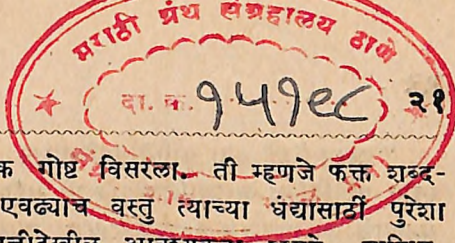 मराठी ग्रंथ संग्रहालय ठाणे
दा. क्र. १५१९८
२१
क गोष्ट विसरला. ती म्हणजे फक्त शब्द-
एवढ्याच वस्तु त्याच्या धंद्यासाठीं पुरेशा